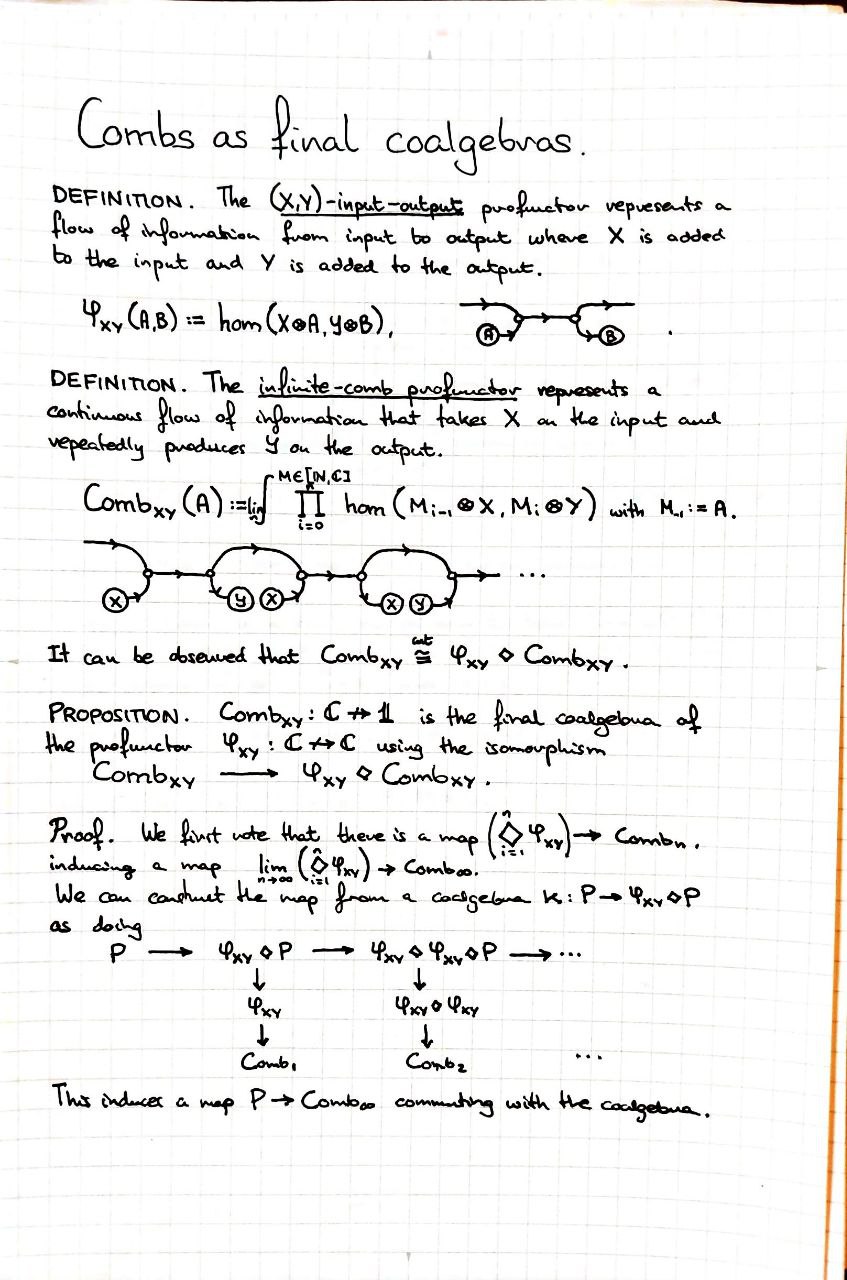 Combs as final coalgebras.
DEFINITION. The (X,Y)-input-output profunctor represents a
flow of information from input to output where X is added
to the input and Y is added to the output.
φ_XY (A,B) := hom (X⊗A, Y⊗B),
A B .
DEFINITION. The infinite-comb profunctor represents a
continuous flow of information that takes X on the input and
repeatedly produces Y on the output.
Comb_XY (A) := lim_n ∫^{M∈[ℕ,ℂ]} ∏_{i=0}^n hom (M_{i-1} ⊗ X, M_i ⊗ Y) with M_{-1} := A.
X Y X X Y ...
It can be observed that Comb_XY ≅ φ_XY ◇ Comb_XY.
PROPOSITION. Comb_XY : ℂ ⇸ 𝟙 is the final coalgebra of
the profunctor φ_XY : ℂ ⇸ ℂ using the isomorphism
Comb_XY ⟶ φ_XY ◇ Comb_XY.
Proof. We first note that there is a map (◇_{i=1}^n φ_XY) → Comb_n.
inducing a map lim_{n→∞} (◇_{i=1}^n φ_XY) → Comb_∞.
We can construct the map from a coalgebra k : P → φ_XY ◇ P
as doing
P ⟶ φ_XY ◇ P ⟶ φ_XY ◇ φ_XY ◇ P ⟶ ...
↓ ↓
φ_XY φ_XY ◇ φ_XY
↓ ↓
Comb_1 Comb_2 ...
This induces a map P → Comb_∞ commuting with the coalgebra.